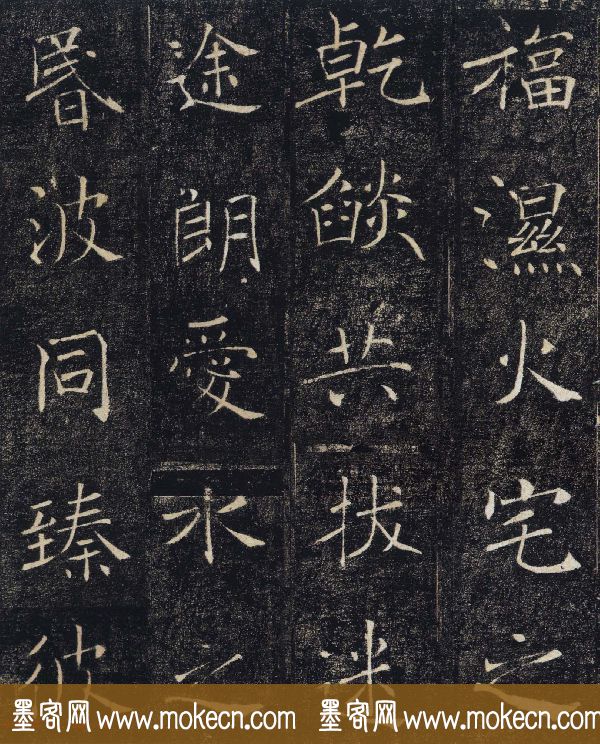 福濕火宅之
乾燄共拔迷
途朗愛水之
昬波同臻彼
墨客网 www.mokecn.com 墨客网 www.mokecn.com